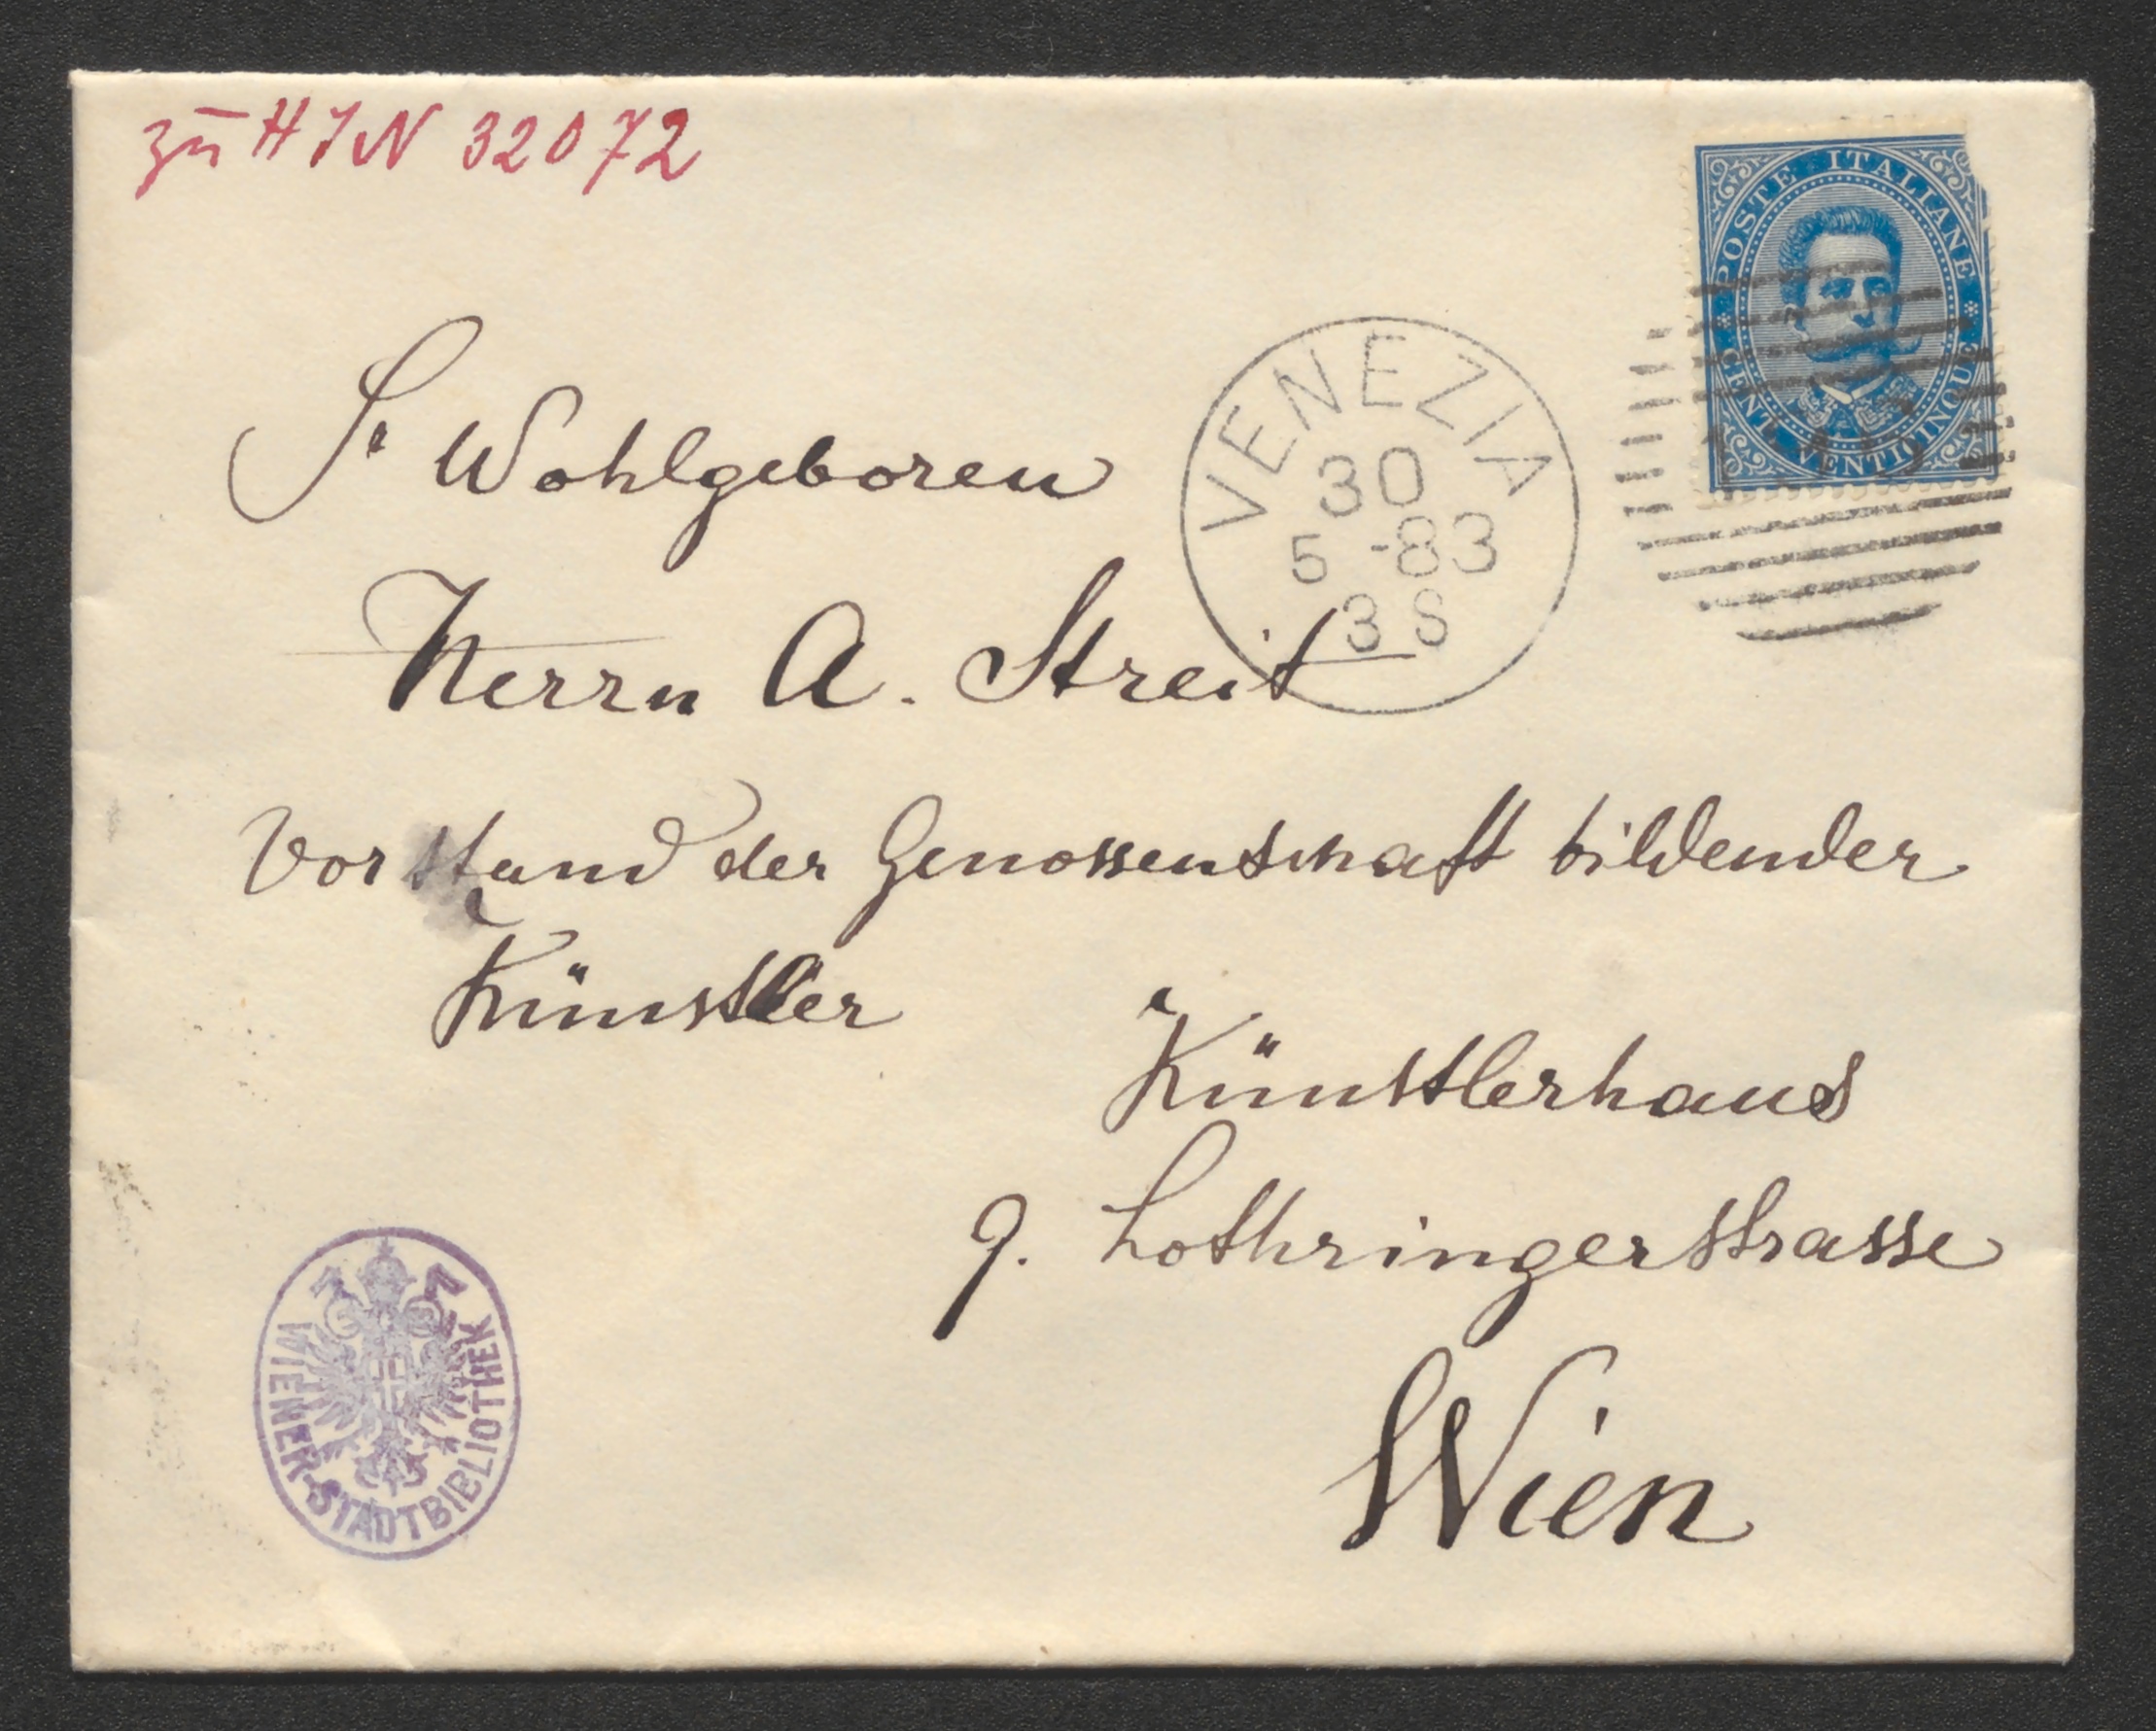 zu H I N 32072
POSTE ITALIANE
CENT. VENTICINQUE
VENEZIA
30
5 -83
3 S
Sr Wohlgeboren
Herrn A. Streit
Vorstand der Genossenschaft bildender
Künstler
Künstlerhaus
9. Lothringerstrasse
Wien
WIENER-STADTBIBLIOTHEK